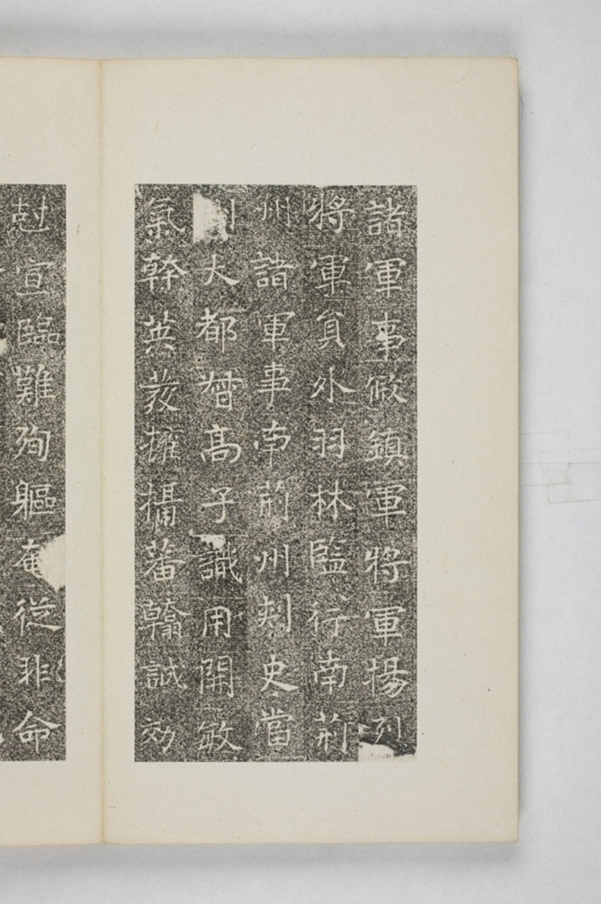 諸軍事鎮軍將軍揚列
將軍員外羽林監行南荊
州諸軍事南荊州刾史當
州大都督高子識用開敏
氣幹英茇擁攝蕃翰誠効
尅宣臨難殉軀奄從非命